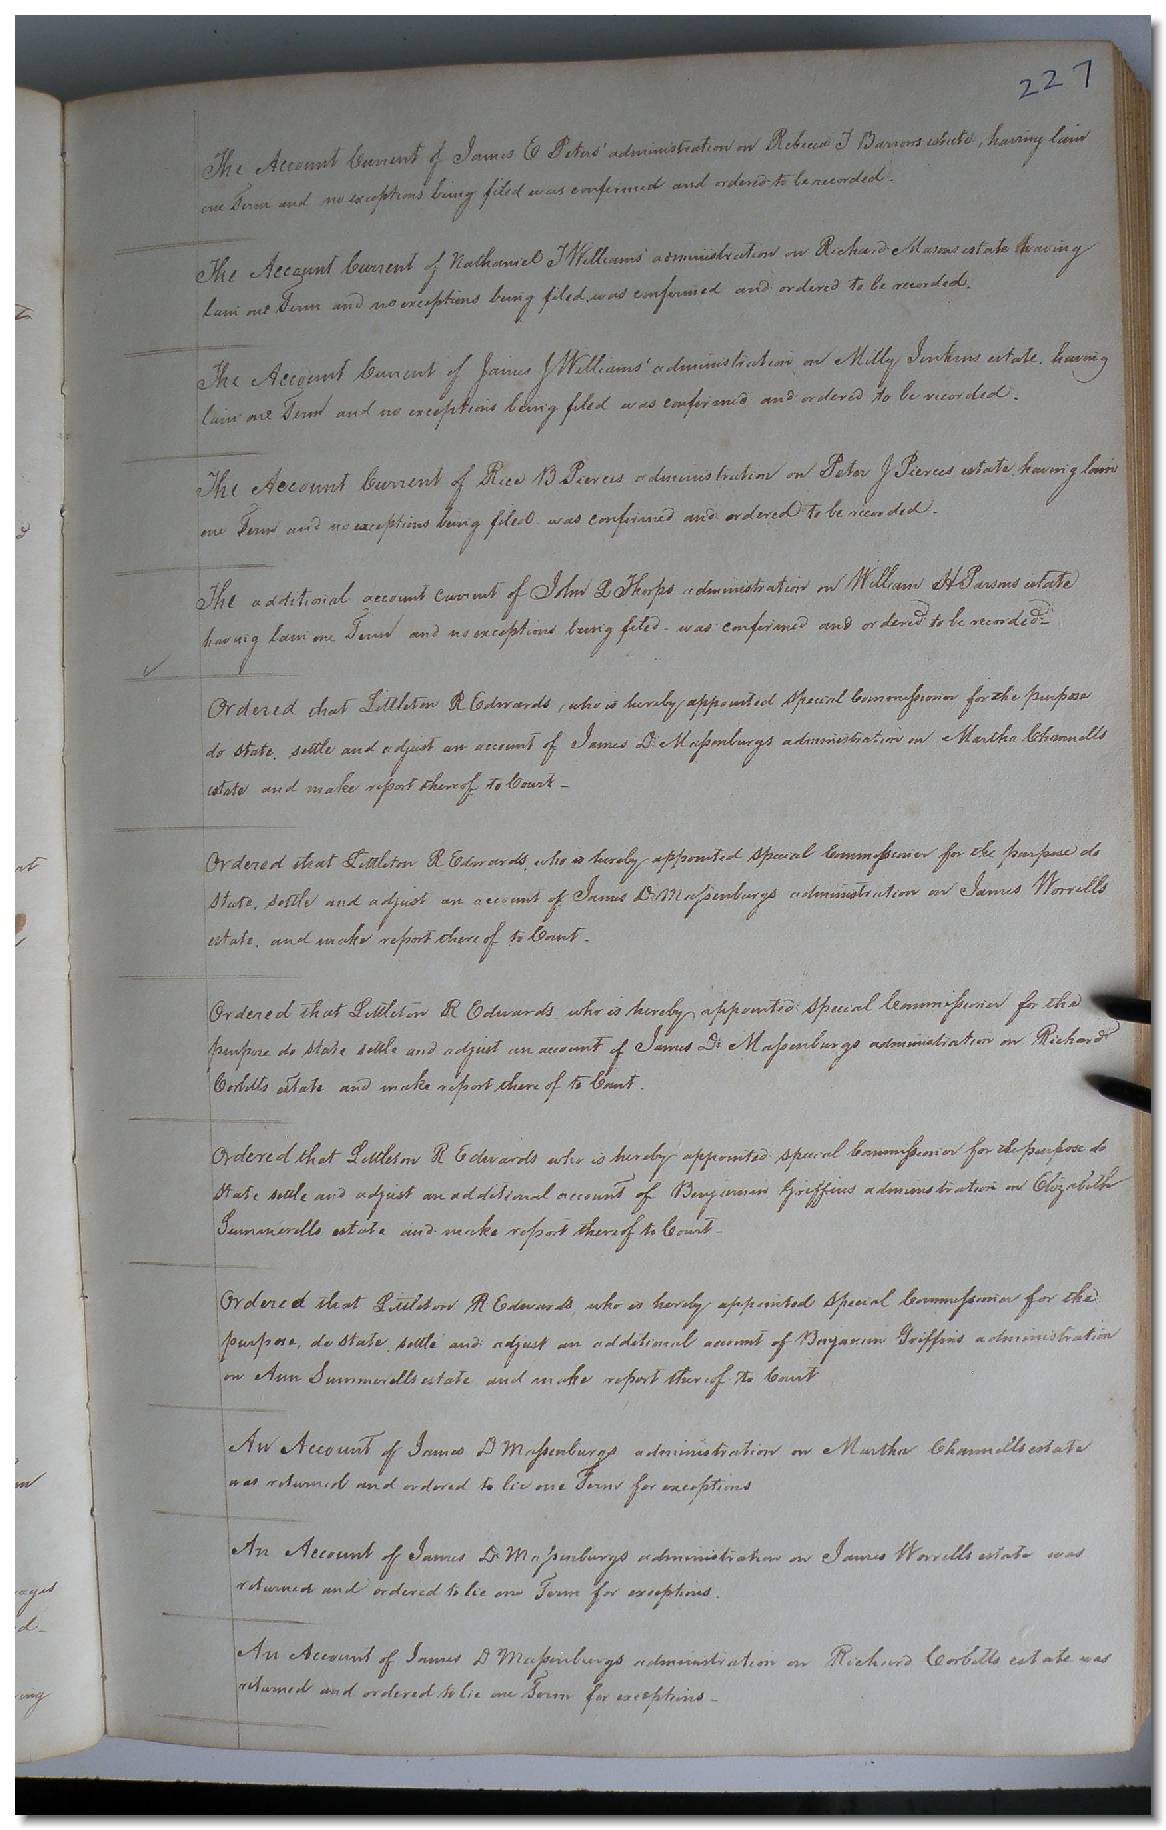 227
The Account Current of James E Peters' administration on Rebecca T Barrons estate, having lain
one Term and no exceptions being filed was confirmed and ordered to be recorded.
The Account Current of Nathaniel T Williams' administration on Richard Masons estate having
lain one Term and no exceptions being filed, was confirmed and ordered to be recorded.
The Account Current of James J Williams' administration on Milly Jenkins estate, having
lain one Term and no exceptions being filed was confirmed and ordered to be recorded.
The Account Current of Rice B Pierces administration on Peter J Pierces estate, having lain
one Term and no exceptions being filed was confirmed and ordered to be recorded.
The additional account current of John Q Thorps administration on William H Parsons estate
having lain one Term and no exceptions being filed - was confirmed and ordered to be recorded -
Ordered that Littleton R Edwards, who is hereby appointed special Commissioner for the purpose
do state, settle and adjust an account of James D. Massenburgs administration on Martha Channells
estate and make report thereof to Court -
Ordered that Littleton R Edwards, who is hereby appointed special Commissioner for the purpose do
state, settle and adjust an account of James D. Massenburgs administration on James Worrells
estate, and make report thereof to Court -
Ordered that Littleton R Edwards who is hereby appointed special Commissioner for the
purpose do state settle and adjust an account of James D. Massenburgs administration on Richard
Corbitts estate and make report thereof to Court.
Ordered that Littleton R Edwards who is hereby appointed special Commissioner for the purpose do
state settle and adjust an additional account of Benjamin Griffins administration on Elizabeth
Summerells estate and make report thereof to Court -
Ordered that Littleton R Edwards who is hereby appointed special Commissioner for the
purpose, do state, settle and adjust an additional account of Benjamin Griffins administration
on Ann Summerells estate and make report thereof to Court
An Account of James D Massenburgs administration on Martha Channells estate
was returned and ordered to lie one Term for exceptions
An Account of James D. Massenburgs administration on James Worrells estate was
returned and ordered to lie one Term for exceptions.
An Account of James D Massenburgs administration on Richard Corbitts estate was
returned and ordered to lie one Term for exceptions -